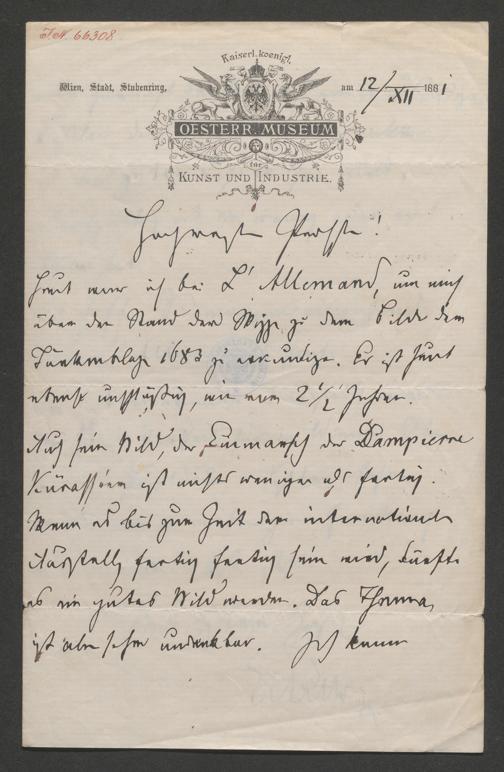 I.N. 66308
Kaiserl. koenigl.
Wien, Stadt, Stubenring, am 12/XII 1881
OESTERR. MUSEUM
für
KUNST UND INDUSTRIE.
Heut war ich bei L'Allemand, um mich
über den Stand der Skizze zu dem Bilde der
Türkenbelag 1683 zu erkundige. Er ist heut
ebenso unschlüssig, wie vor 2 1/2 Jahren.
Auch sein Bild, der Einmarsch der Dampierre
Kürassiere ist nichts weniger als fertig.
Wenn es bis zur Zeit der internationale
Ausstellg fertig fertig sein wird, dürfte
es ein gutes Bild werden. Das Thema
ist aber sehr undankbar. Ich kann